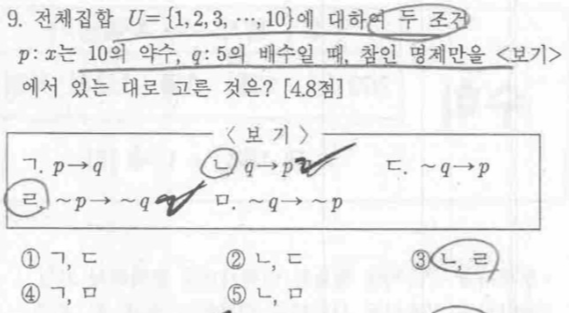 9. 전체집합 U={1,2,3, ⋯,10}에 대하여 두 조건
p: x는 10의 약수, q: 5의 배수일 때, 참인 명제만을 <보기>
에서 있는 대로 고른 것은? [4.8점]
< 보 기 >
ㄱ. p→q ㄴ. q→p ㄷ. ~q→p
ㄹ. ~p→ ~q ㅁ. ~q→ ~p
① ㄱ, ㄷ ② ㄴ, ㄷ ③ ㄴ, ㄹ
④ ㄱ, ㅁ ⑤ ㄴ, ㅁ